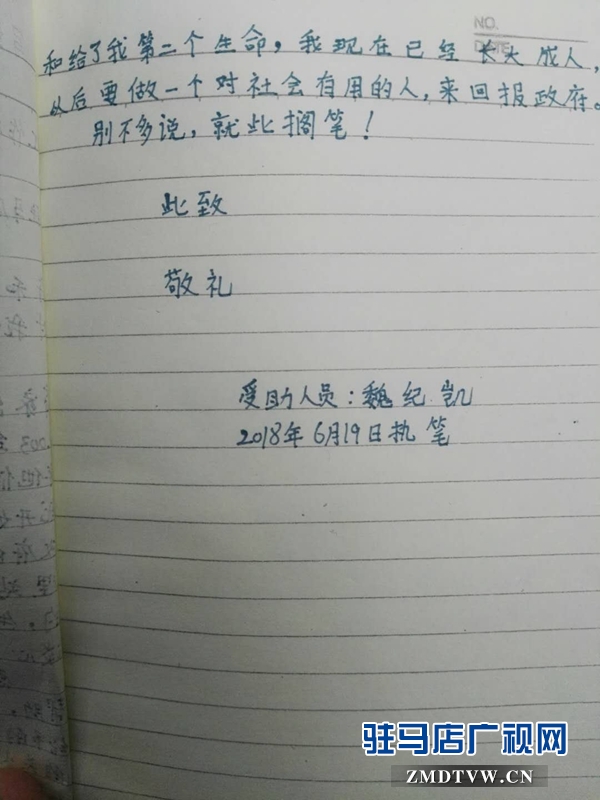 NO.
DATE
和给了我第二个生命，我现在已经长大成人，
从后要做一个对社会有用的人，来回报政府。
别不多说，就此搁笔！
此致
敬礼
受助人员：魏纪凯
2018年6月19日执笔
驻马店广视网
ZMDTVW.CN